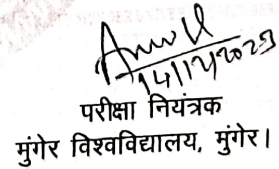 14/12/2023
परीक्षा नियंत्रक
मुंगेर विश्वविद्यालय, मुंगेर।